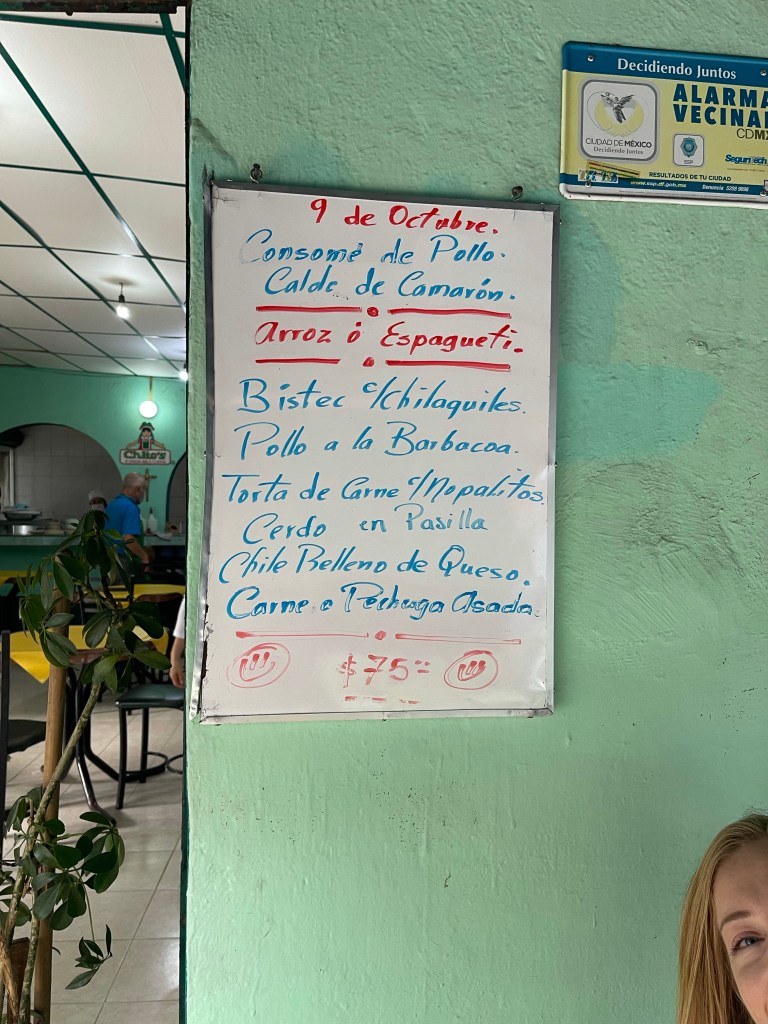 9 de Octubre.
Consomé de Pollo.
Caldo de Camarón.
Arroz ó Espagueti.
Bistec c/Chilaquiles.
Pollo a la Barbacoa.
Torta de Carne c/Nopalitos.
Cerdo en Pasilla
Chile Relleno de Queso.
Carne o Pechuga Asada.
$75=
Decidiendo Juntos
ALARMA
VECINAL
CDMX
CIUDAD DE MÉXICO
Decidiendo Juntos
SSP
Seguritech
RESULTADOS DE TU CIUDAD
www.ssp.df.gob.mx
Denuncia 5208 9898
Chito's